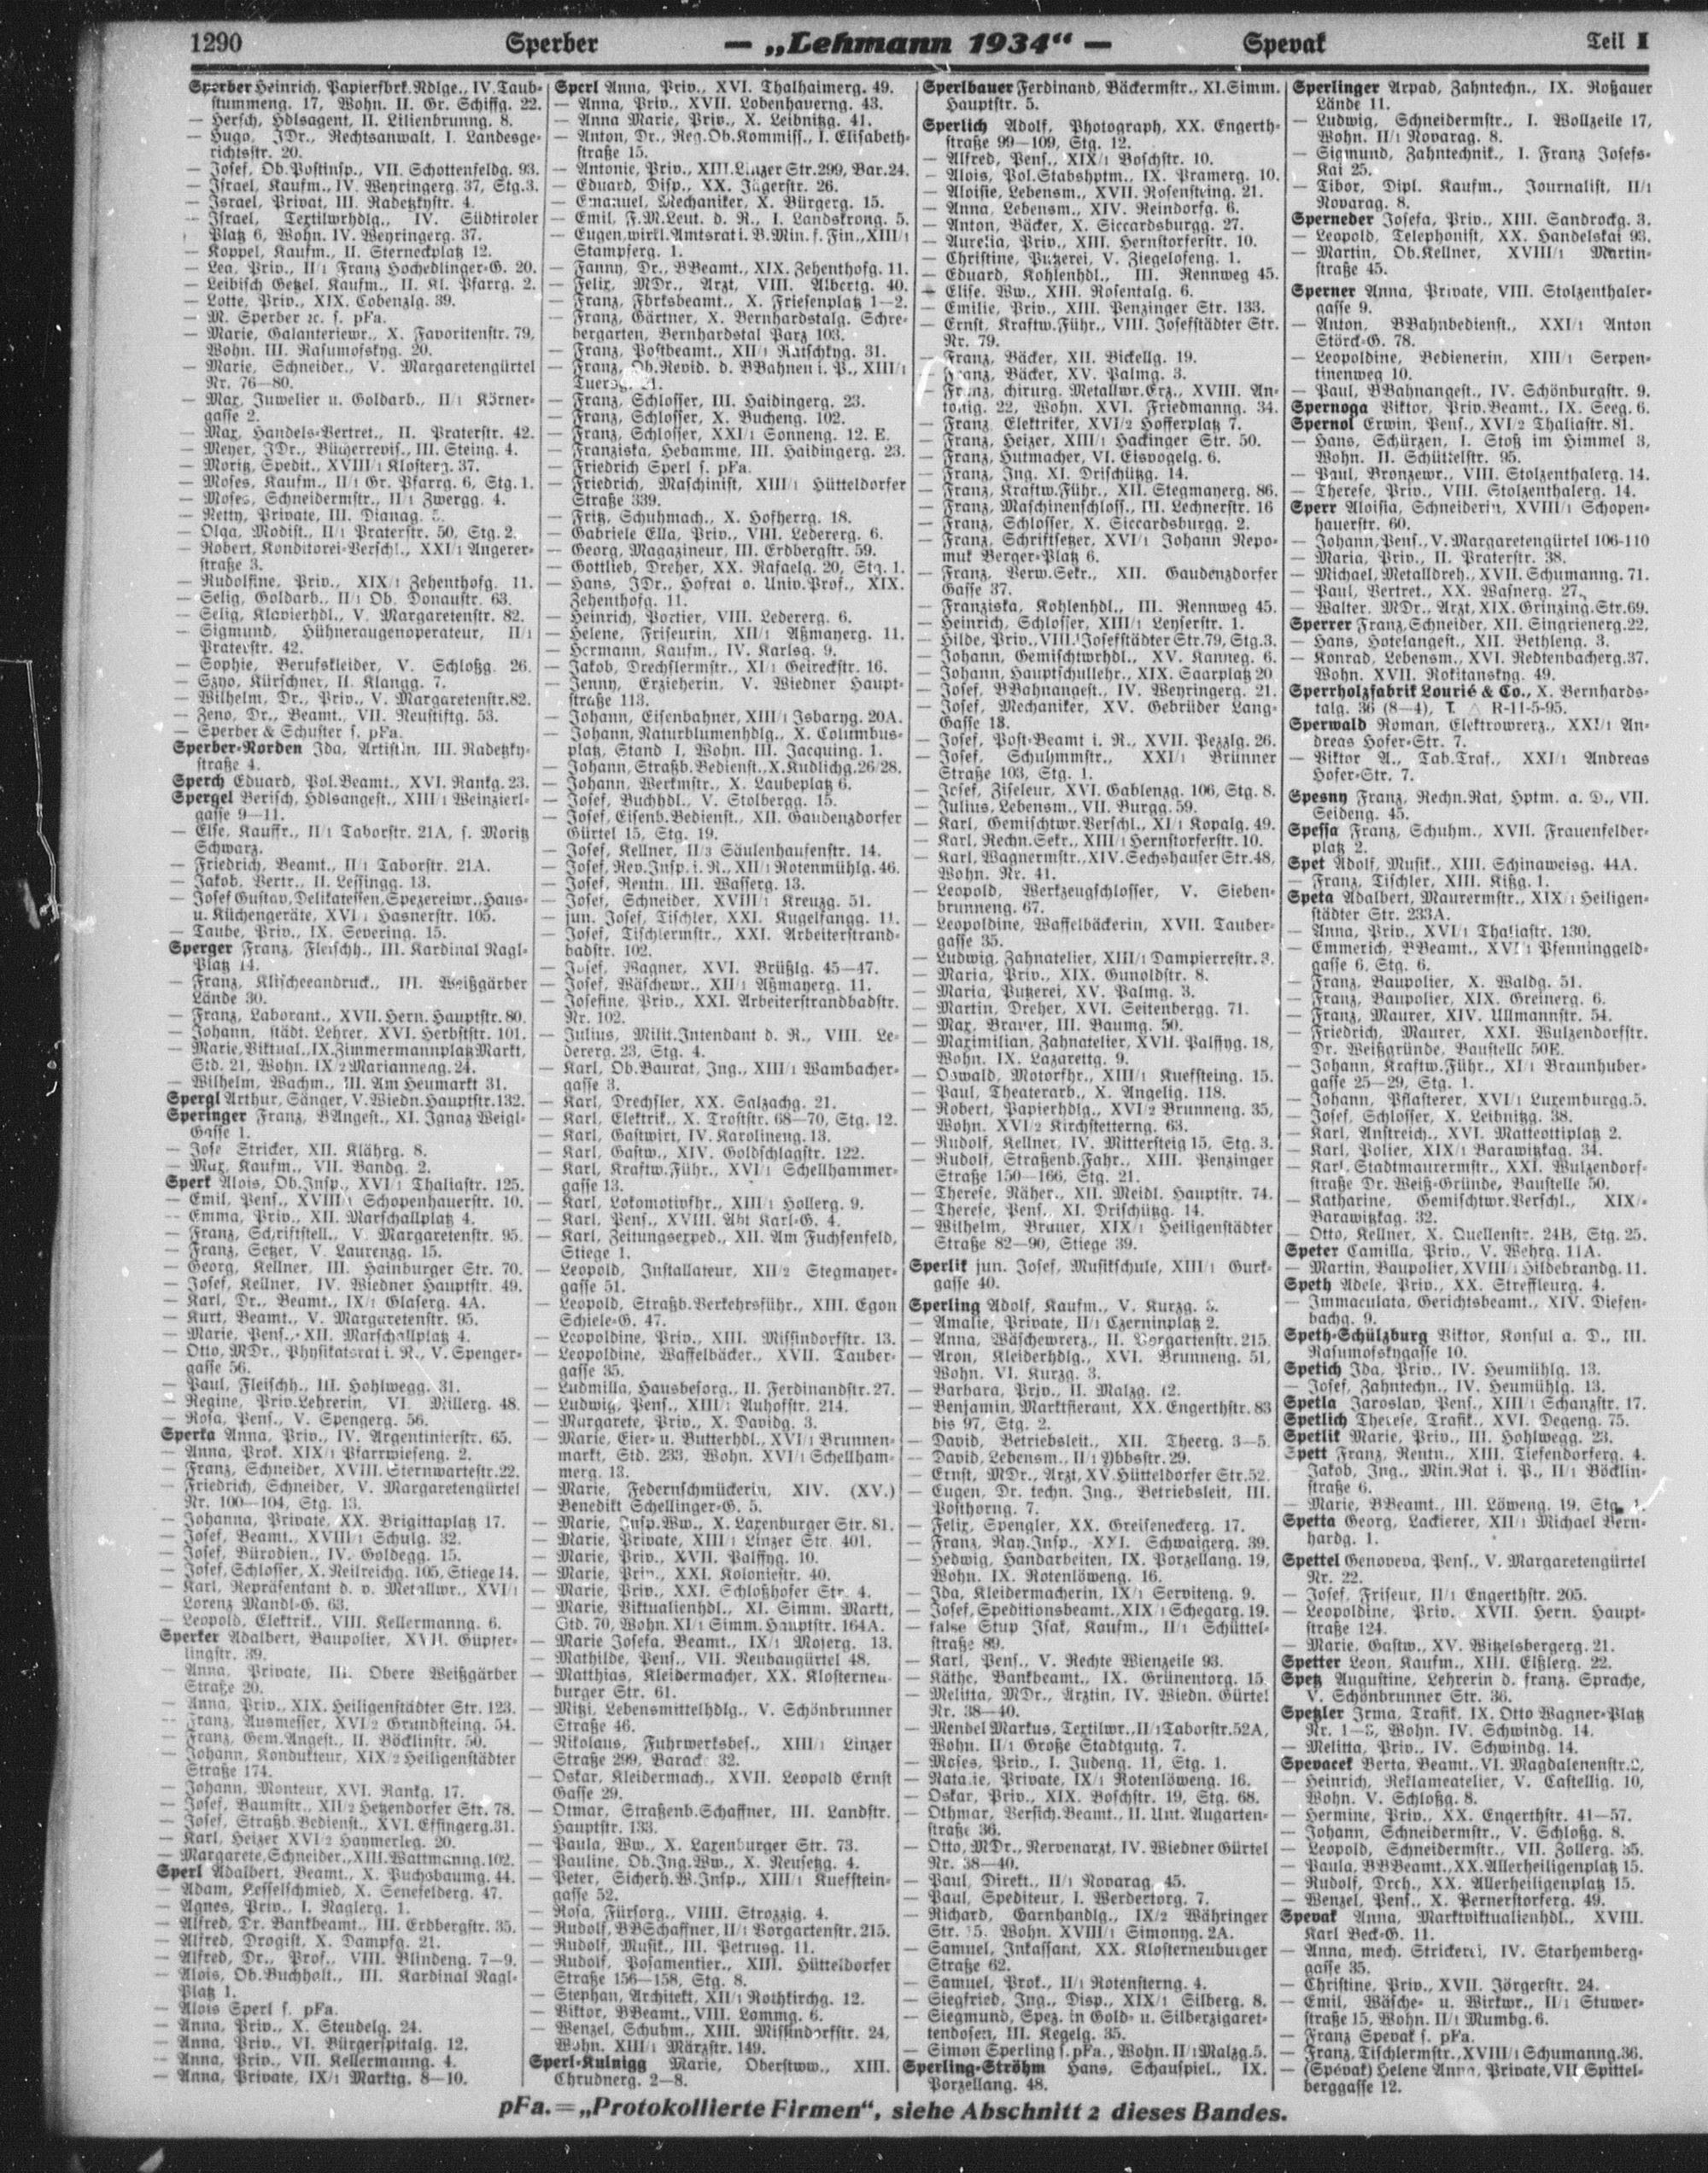 1290 Sperber — „Lehmann 1934“ — Spevak Teil I
Sperber Heinrich, Papierfbrk.Ndlge., IV. Taub-
stummeng. 17, Wohn. II. Gr. Schiffg. 22.
— Hersch, Hdlsagent, II. Lilienbrunng. 8.
— Hugo, JDr., Rechtsanwalt, I. Landesge-
richtsstr. 20.
— Josef, Ob.Postinsp., VII. Schottenfeldg. 93.
— Israel, Kaufm., IV. Weyringerg. 37, Stg.3.
— Israel, Privat, III. Radetzkystr. 4.
— Israel, Textilwrhdlg., IV. Südtiroler
Platz 6, Wohn. IV. Weyringerg. 37.
— Koppel, Kaufm., II. Sterneckplatz 12.
— Lea, Priv., II/1 Franz Hochedlinger-G. 20.
— Leibisch Getzel, Kaufm., II. Kl. Pfarrg. 2.
— Lotte, Priv., XIX. Cobenzlg. 39.
— M. Sperber ec. s. pFa.
— Marie, Galanteriewr., X. Favoritenstr. 79,
Wohn. III. Rasumofskyg. 20.
— Marie, Schneider., V. Margaretengürtel
Nr. 76—80.
— Max, Juwelier u. Goldarb., II/1 Körner-
gasse 2.
— Max, Handels-Vertret., II. Praterstr. 42.
— Meyer, JDr., Bücherrevis., III. Steing. 4.
— Moritz, Spedit., XVIII/1 Klosterg. 37.
— Moses, Kaufm., II/1 Gr. Pfarrg. 6, Stg. 1.
— Moses, Schneidermstr., II/1 Zwergg. 4.
— Netty, Private, III. Dianag.
— Olga, Modist., II/1 Praterstr. 50, Stg. 2.
— Robert, Konditorei-Verschl., XXI/1 Angerer-
straße 3.
— Rudolfine, Priv., XIX/1 Zehenthofg. 11.
— Selig, Goldarb., II/1 Ob. Donaustr. 63.
— Selig, Klavierhdl., V. Margaretenstr. 82.
— Sigmund, Hühneraugenoperateur, II/1
Praterstr. 42.
— Sophie, Berufskleider, V. Schloßg. 26.
— Szyo, Kürschner, II. Klangg. 7.
— Wilhelm, Dr., Priv., V. Margaretenstr. 82.
— Zeno, Dr., Beamt., VII. Neustiftg. 53.
— Sperber & Schuster s. pFa.
Sperber-Norden Ida, Artistin, III. Radetzky-
straße 4.
Sperch Eduard, Pol.Beamt., XVI. Rankg. 23.
Spergel Berisch, Hdlsangest., XIII/1 Weinzierl-
gasse 9—11.
— Else, Kauffr., II/1 Taborstr. 21A, s. Moritz
Schwarz.
— Friedrich, Beamt., II/1 Taborstr. 21A.
— Jakob, Vertr., II. Lessingg. 13.
— Josef Gustav, Delikatessen, Spezereiwr., Haus-
u. Küchengeräte, XVI/1 Hasnerstr. 105.
— Taube, Priv., IX. Severing. 15.
Sperger Franz, Fleischh., III. Kardinal Nagl-
Platz 14.
— Franz, Klischeeandruck., III. Weißgärber
Lände 30.
— Franz, Laborant., XVII. Hern. Hauptstr. 80.
— Johann, städt. Lehrer, XVI. Herbststr. 101.
— Marie, Viktual., IX. Zimmermannplatz Markt,
Std. 21, Wohn. IX/2 Marianneng. 24.
— Wilhelm, Wachm., III. Am Heumarkt 31.
Spergl Arthur, Sänger, V. Wiedn. Hauptstr. 132.
Speringer Franz, BAngest., XI. Ignaz Weigl-
Gasse 1.
— Jose Stricker, XII. Klährg. 8.
— Max, Kaufm., VII. Bandg. 2.
Sperk Alois, Ob.Insp., XVI/1 Thaliastr. 125.
— Emil, Pens., XVIII/1 Schopenhauerstr. 10.
— Emma, Priv., XII. Marschallplatz 4.
— Franz, Schriftstell., V. Margaretenstr. 95.
— Franz, Setzer, V. Laurenzg. 15.
— Georg, Kellner, III. Hainburger Str. 70.
— Josef, Kellner, IV. Wiedner Hauptstr. 49.
— Karl, Dr., Beamt., IX/1 Glaserg. 4A.
— Kurt, Beamt., V. Margaretenstr. 95.
— Marie, Pens., XII. Marschallplatz 4.
— Otto, MDr., Physikatsrat i. R., V. Spenger-
gasse 56.
— Paul, Fleischh., III. Hohlwegg. 31.
— Regine, Priv.Lehrerin, VI. Millerg. 48.
— Rosa, Pens., V. Spengerg. 56.
Sperka Anna, Priv., IV. Argentinierstr. 65.
— Anna, Prok. XIX/1 Pfarrwieseng. 2.
— Franz, Schneider, XVIII. Sternwartestr. 22.
— Friedrich, Schneider, V. Margaretengürtel
Nr. 100—104, Stg. 13.
— Johanna, Private, XX. Brigittaplatz 17.
— Josef, Beamt., XVIII/1 Schulg. 32.
— Josef, Bürodien., IV. Goldegg. 15.
— Josef, Schlosser, X. Neilreichg. 105, Stiege 14.
— Karl, Repräsentant d. v. Metallwr., XVI/1
Lorenz Mandl-G. 63.
— Leopold, Elektrik., VIII. Kellermanng. 6.
Sperker Adalbert, Baupolier, XVII. Güpfer-
lingstr. 39.
— Anna, Private, III. Obere Weißgärber
Straße 20.
— Anna, Priv., XIX. Heiligenstädter Str. 123.
— Franz, Ausmesser, XVI/2 Grundsteing. 54.
— Franz, Gem.Angest., II. Böcklinstr. 50.
— Johann, Kondukteur, XIX/2 Heiligenstädter
Straße 174.
— Johann, Monteur, XVI. Rankg. 17.
— Josef, Baumstr., XII/2 Hetzendorfer Str. 78.
— Josef, Straßb.Bedienst., XVI. Effingerg. 31.
— Karl, Heizer XVI/2 Haymerleg. 20.
— Margarete, Schneider., XIII. Wattmanng. 102.
Sperl Adalbert, Beamt., X. Puchsbaumg. 44.
— Adam, Kesselschmied, X. Senefelderg. 47.
— Agnes, Priv., I. Naglerg. 1.
— Alfred, Dr. Bankbeamt., III. Erdbergstr. 35.
— Alfred, Drogist, X. Dampfg. 21.
— Alfred, Dr., Prof., VIII. Blindeng. 7—9.
— Alois, Ob.Buchhalt., III. Kardinal Nagl-
Platz 1.
— Alois Sperl s. pFa.
— Anna, Priv., X. Steudelg. 24.
— Anna, Priv., VI. Bürgerspitalg. 12.
— Anna, Priv., VII. Kellermanng. 4.
— Anna, Private, IX/1 Marktg. 8—10.
Sperl Anna, Priv., XVI. Thalhaimerg. 49.
— Anna, Priv., XVII. Lobenhauerng. 43.
— Anna Marie, Priv., X. Leibnitzg. 41.
— Anton, Dr., Reg.Ob.Kommiss., I. Elisabeth-
straße 15.
— Antonie, Priv., XIII. Linzer Str. 299, Bar. 24.
— Eduard, Disp., XX. Jägerstr. 26.
— Emanuel, Mechaniker, X. Bürgerg. 15.
— Emil, F.M.Leut. d. R., I. Landskrong. 5.
— Eugen, wirkl. Amtsrat i. B.Min. f. Fin., XIII/1
Stampferg. 1.
— Fanny, Dr., BBeamt., XIX. Zehenthofg. 11.
— Felix, MDr., Arzt, VIII. Albertg. 40.
— Franz, Fbrksbeamt., X. Friesenplatz 1—2.
— Franz, Gärtner, X. Bernhardstalg. Schre-
bergarten, Bernhardstal Parz 103.
— Franz, Postbeamt., XII/1 Ratschkyg. 31.
— Franz, Ob.Revid. d. BBahnen i. P., XIII/1
Tuersg. 21.
— Franz, Schlosser, III. Haidingerg. 23.
— Franz, Schlosser, X. Bucheng. 102.
— Franz, Schlosser, XXI/1 Sonneng. 12. E.
— Franziska, Hebamme, III. Haidingerg. 23.
— Friedrich Sperl s. pFa.
— Friedrich, Maschinist, XIII/1 Hütteldorfer
Straße 339.
— Fritz, Schuhmach., X. Hofherrg. 18.
— Gabriele Ella, Priv., VIII. Ledererg. 6.
— Georg, Magazineur, III. Erdbergstr. 59.
— Gottlieb, Dreher, XX. Rafaelg. 20, Stg. 1.
— Hans, JDr., Hofrat o. Univ.Prof., XIX.
Zehenthofg. 11.
— Heinrich, Portier, VIII. Ledererg. 6.
— Helene, Friseurin, XII/1 Aßmayerg. 11.
— Hermann, Kaufm., IV. Karlsg. 9.
— Jakob, Drechslermstr., XI/1 Geireckstr. 16.
— Jenny, Erzieherin, V. Wiedner Haupt-
straße 113.
— Johann, Eisenbahner, XIII/1 Isbaryg. 20A.
— Johann, Naturblumenhdlg., X. Columbus-
platz, Stand I, Wohn. III. Jacquing. 1.
— Johann, Straßb.Bedienst., X. Kudlichg. 26/28.
— Johann, Werkmstr., X. Laubeplatz 6.
— Josef, Buchhdl., V. Stolbergg. 15.
— Josef, Eisenb.Bedienst., XII. Gaudenzdorfer
Gürtel 15, Stg. 19.
— Josef, Kellner, II/3 Säulenhaufenstr. 14.
— Josef, Rev.Insp. i. R., XII/1 Rotenmühlg. 46.
— Josef, Rentn., III. Wasserg. 13.
— Josef, Schneider, XVIII/1 Kreuzg. 51.
— jun. Josef, Tischler, XXI. Kugelfangg. 11.
— Josef, Tischlermstr., XXI. Arbeiterstrand-
badstr. 102.
— Josef, Wagner, XVI. Brüßlg. 45—47.
— Josef, Wäschewr., XII/1 Aßmayerg. 11.
— Josefine, Priv., XXI. Arbeiterstrandbadstr.
Nr. 102.
— Julius, Milit.Intendant d. R., VIII. Le-
dererg. 23, Stg. 4.
— Karl, Ob.Baurat, Ing., XIII/1 Wambacher-
gasse 3.
— Karl, Drechsler, XX. Salzachg. 21.
— Karl, Elektrik., X. Troststr. 68—70, Stg. 12.
— Karl, Gastwirt, IV. Karolineng. 13.
— Karl, Gastw., XIV. Goldschlagstr. 122.
— Karl, Kraftw.Führ., XVI/1 Schellhammer-
gasse 13.
— Karl, Lokomotivfhr., XIII/1 Hollerg. 9.
— Karl, Pens., XVIII. Abt Karl-G. 4.
— Karl, Zeitungsexped., XII. Am Fuchsenfeld,
Stiege 1.
— Leopold, Installateur, XII/2 Stegmayer-
gasse 51.
— Leopold, Straßb.Verkehrsführ., XIII. Egon
Schiele-G. 47.
— Leopoldine, Priv., XIII. Missindorfstr. 13.
— Leopoldine, Waffelbäcker., XVII. Tauber-
gasse 35.
— Ludmilla, Hausbesorg., II. Ferdinandstr. 27.
— Ludwig, Pens., XIII/1 Auhofstr. 214.
— Margarete, Priv., X. Davidg. 3.
— Marie, Eier- u. Butterhdl., XVI/1 Brunnen-
markt, Std. 233, Wohn. XVI/1 Schellham-
merg. 13.
— Marie, Federnschmückerin, XIV. (XV.)
Benedikt Schellinger-G. 5.
— Marie, Insp.Ww., X. Laxenburger Str. 81.
— Marie, Private, XIII/1 Linzer Str. 401.
— Marie, Priv., XVII. Palffyg. 10.
— Marie, Priv., XXI. Koloniestr. 40.
— Marie, Priv., XXI. Schloßhofer Str. 4.
— Marie, Viktualienhdl., XI. Simm. Markt,
Std. 70, Wohn. XI/1 Simm. Hauptstr. 164A.
— Marie Josefa, Beamt., IX/1 Moserg. 13.
— Mathilde, Pens., VII. Neubaugürtel 48.
— Matthias, Kleidermacher, XX. Klosterneu-
burger Str. 61.
— Mitzi, Lebensmittelhdlg., V. Schönbrunner
Straße 46.
— Nikolaus, Fuhrwerksbes., XIII/1 Linzer
Straße 299, Barack 32.
— Oskar, Kleidermach., XVII. Leopold Ernst
Gasse 29.
— Otmar, Straßenb.Schaffner, III. Landstr.
Hauptstr. 133.
— Paula, Ww., X. Laxenburger Str. 73.
— Pauline, Ob.Ing.Ww., X. Neusetzg. 4.
— Peter, Sicherh.W.Insp., XIII/1 Kuefstein-
gasse 52.
— Rosa, Fürsorg., VIII. Strozzig. 4.
— Rudolf, BBSchaffner, II/1 Vorgartenstr. 215.
— Rudolf, Musik., III. Petrusg. 11.
— Rudolf, Posamentier., XIII. Hütteldorfer
Straße 156—158, Stg. 8.
— Stephan, Architekt, XII/1 Rothkirchg. 12.
— Viktor, BBeamt., VIII. Lammg. 6.
— Wenzel, Schuhm., XIII. Missindorfstr. 24,
Wohn. XIII/1 Märzstr. 149.
Sperl-Kulnigg Marie, Oberstww., XIII.
Chrudnerg. 2—8.
Sperlbauer Ferdinand, Bäckermstr., XI. Simm.
Hauptstr. 5.
Sperlich Adolf, Photograph, XX. Engerth-
straße 99—109, Stg. 12.
— Alfred, Pens., XIX/1 Boschstr. 10.
— Alois, Pol.Stabshptm., IX. Pramerg. 10.
— Aloisie, Lebensm., XVII. Rosensteing. 21.
— Anna, Lebensm., XIV. Reindorfg. 6.
— Anton, Bäcker, X. Siccardsburgg. 27.
— Aurelia, Priv., XIII. Hernstorferstr. 10.
— Christine, Putzerei, V. Ziegelofeng. 1.
— Eduard, Kohlenhdl., III. Rennweg 45.
— Elise, Ww., XIII. Rosentalg. 6.
— Emilie, Priv., XIII. Penzinger Str. 133.
— Ernst, Kraftw.Führ., VIII. Josefstädter Str.
Nr. 79.
— Franz, Bäcker, XII. Bickellg. 19.
— Franz, Bäcker, XV. Palmg. 3.
— Franz, chirurg. Metallwr.Erz., XVIII. An-
tonig. 22, Wohn. XVI. Friedmanng. 34.
— Franz, Elektriker, XVI/2 Hofferplatz 7.
— Franz, Heizer, XIII/1 Hackinger Str. 50.
— Franz, Hutmacher, VI. Eisvogelg. 6.
— Franz, Ing. XI. Drischützg. 14.
— Franz, Kraftw.Führ., XII. Stegmayerg. 86.
— Franz, Maschinenschloss., III. Lechnerstr. 16
— Franz, Schlosser, X. Siccardsburgg. 2.
— Franz, Schriftsetzer, XVI/1 Johann Nepo-
muk Berger-Platz 6.
— Franz, Verw.Sekr., XII. Gaudenzdorfer
Gasse 37.
— Franziska, Kohlenhdl., III. Rennweg 45.
— Heinrich, Schlosser, XIII/1 Leyserstr. 1.
— Hilde, Priv., VIII. Josefstädter Str. 79, Stg. 3.
— Johann, Gemischtwrhdl., XV. Kanneg. 6.
— Johann, Hauptschullehr., XIX. Saarplatz 20
— Josef, BBahnangest., IV. Weyringerg. 21.
— Josef, Mechaniker, XV. Gebrüder Lang-
Gasse 18.
— Josef, Post-Beamt i. R., XVII. Pezzlg. 26.
— Josef, Schuhmstr., XXI/1 Brünner
Straße 103, Stg. 1.
— Josef, Ziseleur, XVI. Gablenzg. 106, Stg. 8.
— Julius, Lebensm., VII. Burgg. 59.
— Karl, Gemischtwr.Verschl., XI/1 Kopalg. 49.
— Karl, Rechn.Sekr., XIII/1 Hernstorferstr. 10.
— Karl, Wagnermstr., XIV. Sechshauser Str. 48,
Wohn. Nr. 41.
— Leopold, Werkzeugschlosser, V. Sieben-
brunneng. 67.
— Leopoldine, Waffelbäckerin, XVII. Tauber-
gasse 35.
— Ludwig, Zahnatelier, XIII/1 Dampierrestr. 3.
— Maria, Priv., XIX. Gunoldstr. 8.
— Maria, Putzerei, XV. Palmg. 3.
— Martin, Dreher, XVI. Seitenbergg. 71.
— Max, Brauer, III. Baumg. 50.
— Maximilian, Zahnatelier, XVII. Palffyg. 18,
Wohn. IX. Lazarettg. 9.
— Oswald, Motorfhr., XIII/1 Kuefsteing. 15.
— Paul, Theaterarb., X. Angelig. 118.
— Robert, Papierhdlg., XVI/2 Brunneng. 35,
Wohn. XVI/2 Kirchstetterng. 63.
— Rudolf, Kellner, IV. Mittersteig 15, Stg. 3.
— Rudolf, Straßenb.Fahr., XIII. Penzinger
Straße 150—166, Stg. 21.
— Therese, Näher., XII. Meidl. Hauptstr. 74.
— Therese, Pens., XI. Drischützg. 14.
— Wilhelm, Brauer, XIX/1 Heiligenstädter
Straße 82—90, Stiege 39.
Sperlik jun. Josef, Musikschule, XIII/1 Gurk-
gasse 40.
Sperling Adolf, Kaufm., V. Kurzg. 3.
— Amalie, Private, II/1 Czerninplatz 2.
— Anna, Wäschewrerz., II. Vorgartenstr. 215.
— Aron, Kleiderhdlg., XVI. Brunneng. 51,
Wohn. VI. Kurzg. 3.
— Barbara, Priv., II. Malzg. 12.
— Benjamin, Marktfierant, XX. Engerthstr. 83
bis 97, Stg. 2.
— David, Betriebsleit., XII. Theerg. 3—5.
— David, Lebensm., II/1 Ybbsstr. 29.
— Ernst, MDr., Arzt, XV. Hütteldorfer Str. 52.
— Eugen, Dr. techn. Ing., Betriebsleit, III.
Posthorng. 7.
— Felix, Spengler, XX. Greiseneckerg. 17.
— Franz, Ray.Insp., XXI. Schwaigerg. 39.
— Hedwig, Handarbeiten, IX. Porzellang. 19,
Wohn. IX. Rotenlöweng. 16.
— Ida, Kleidermacherin, IX/1 Serviteng. 9.
— Josef, Speditionsbeamt., XIX/1 Schegarg. 19.
— false Stup Isak, Kaufm., II/1 Schüttel-
straße 89.
— Karl, Pens., V. Rechte Wienzeile 93.
— Käthe, Bankbeamt., IX. Grünentorg. 15.
— Melitta, MDr., Ärztin, IV. Wiedn. Gürtel
Nr. 38—40.
— Mendel Markus, Textilwr., II/1 Taborstr. 52A,
Wohn. II/1 Große Stadtgutg. 7.
— Moses, Priv., I. Judeng. 11, Stg. 1.
— Natalie, Private, IX/1 Rotenlöweng. 16.
— Oskar, Priv., XIX. Boschstr. 19, Stg. 68.
— Othmar, Versich.Beamt., II. Unt. Augarten-
straße 36.
— Otto, MDr., Nervenarzt, IV. Wiedner Gürtel
Nr. 38—40.
— Paul, Direkt., II/1 Novarag. 45.
— Paul, Spediteur, I. Werdertorg. 7.
— Richard, Garnhandlg., IX/2 Währinger
Str. Wohn. XVIII/1 Simonyg. 2A.
— Samuel, Inkassant, XX. Klosterneuburger
Straße 62.
— Samuel, Prok., II/1 Rotensterng. 4.
— Siegfried, Ing., Disp., XIX/1 Silberg. 8.
— Siegmund, Spez. in Gold- u. Silberzigaret-
tendosen, III. Kegelg. 35.
— Simon Sperling s. pFa., Wohn. II/1 Malzg. 5.
Sperling-Ströhm Hans, Schauspiel., IX.
Porzellang. 48.
Sperlinger Arpad, Zahntechn., IX. Roßauer
Lände 11.
— Ludwig, Schneidermstr., I. Wollzeile 17,
Wohn. II/1 Novarag. 8.
— Sigmund, Zahntechnik., I. Franz Josefs-
Kai 25.
— Tibor, Dipl. Kaufm., Journalist, II/1
Novarag. 8.
Sperneder Josefa, Priv., XIII. Sandrockg. 3.
— Leopold, Telephonist, XX. Handelskai 93.
— Martin, Ob.Kellner, XVIII/1 Martin-
straße 45.
Sperner Anna, Private, VIII. Stolzenthaler-
gasse 9.
— Anton, BBahnbedienst., XXI/1 Anton
Störck-G. 78.
— Leopoldine, Bedienerin, XIII/1 Serpen-
tinenweg 10.
— Paul, BBahnangest., IV. Schönburgstr. 9.
Spernoga Viktor, Priv.Beamt., IX. Seeg. 6.
Spernol Erwin, Pens., XVI/2 Thaliastr. 81.
— Hans, Schürzen, I. Stoß im Himmel 3,
Wohn. II. Schüttelstr. 95.
— Paul, Bronzewr., VIII. Stolzenthalerg. 14.
— Therese, Priv., VIII. Stolzenthalerg. 14.
Sperr Aloisia, Schneiderin, XVIII/1 Schopen-
hauerstr. 60.
— Johann, Pens., V. Margaretengürtel 106-110
— Maria, Priv., II. Praterstr. 38.
— Michael, Metalldreh., XVII. Schumanng. 71.
— Paul, Vertret., XX. Wasnerg. 27.
— Walter, MDr., Arzt, XIX. Grinzing. Str. 69.
Sperrer Franz, Schneider, XII. Singrienerg. 22.
— Hans, Hotelangest., XII. Bethleng. 3.
— Konrad, Lebensm., XVI. Redtenbacherg. 37.
Wohn. XVII. Rokitanskyg. 49.
Sperrholzfabrik Lourié & Co., X. Bernhards-
talg. 36 (8—4), T. △ R-11-5-95.
Sperwald Roman, Elektrowrerz., XXI/1 An-
dreas Hofer-Str. 7.
— Viktor A., Tab.Traf., XXI/1 Andreas
Hofer-Str. 7.
Spesny Franz, Rechn.Rat, Hptm. a. D., VII.
Seideng. 45.
Spessa Franz, Schuhm., XVII. Frauenfelder-
platz 2.
Spet Adolf, Musik., XIII. Schinaweisg. 44A.
— Franz, Tischler, XIII. Kißg. 1.
Speta Adalbert, Maurermstr., XIX/1 Heiligen-
städter Str. 233A.
— Anna, Priv., XVI/1 Thaliastr. 130.
— Emmerich, BBeamt., XVI/1 Pfenninggeld-
gasse 6, Stg. 6.
— Franz, Baupolier, X. Waldg. 51.
— Franz, Baupolier, XIX. Greinerg. 6.
— Franz, Maurer, XIV. Ullmannstr. 54.
— Friedrich, Maurer, XXI. Wulzendorfstr.
Dr. Weißgründe, Baustelle 50E.
— Johann, Kraftw.Führ., XI/1 Braunhuber-
gasse 25—29, Stg. 1.
— Johann, Pflasterer, XVI/1 Luxemburgg. 5.
— Josef, Schlosser, X. Leibnitzg. 38.
— Karl, Anstreich., XVI. Matteottiplatz 2.
— Karl, Polier, XIX/1 Barawitzkag. 34.
— Karl, Stadtmaurermstr., XXI. Wulzendorf-
straße Dr. Weiß-Gründe, Baustelle 50.
— Katharine, Gemischtwr.Verschl., XIX/
Barawitzkag. 32.
— Otto, Kellner, X. Quellenstr. 24B, Stg. 25.
Speter Camilla, Priv., V. Wehrg. 11A.
— Martin, Baupolier, XVIII/1 Hildebrandg. 11.
Speth Adele, Priv., XX. Streffleurg. 4.
— Immaculata, Gerichtsbeamt., XIV. Diefen-
bachg. 9.
Speth-Schülzburg Viktor, Konsul a. D., III.
Rasumofskygasse 10.
Spetich Ida, Priv., IV. Heumühlg. 13.
— Josef, Zahntechn., IV. Heumühlg. 13.
Spetla Jaroslav, Pens., XIII/1 Schanzstr. 17.
Spetlich Therese, Trafik., XVI. Degeng. 75.
Spetlik Marie, Priv., III. Hohlwegg. 23.
Spett Franz, Rentn., XIII. Tiefendorferg. 4.
Jakob, Ing., Min.Rat i. P., II/1 Böcklin-
straße 6.
— Marie, BBeamt., III. Löweng. 19, Stg. 1.
Spetta Georg, Lackierer, XII/1 Michael Bern-
hardg. 1.
Spettel Genoveva, Pens., V. Margaretengürtel
Nr. 22.
— Josef, Friseur, II/1 Engerthstr. 205.
— Leopoldine, Priv., XVII. Hern. Haupt-
straße 124.
— Marie, Gastw., XV. Witzelsbergerg. 21.
Spetter Leon, Kaufm., XIII. Elßlerg. 22.
Spetz Augustine, Lehrerin d. franz. Sprache,
V. Schönbrunner Str. 36.
Spetzler Irma, Trafik. IX. Otto Wagner-Platz
Nr. 1—3, Wohn. IV. Schwindg. 14.
— Melitta, Priv., IV. Schwindg. 14.
Spevacek Berta, Beamt., VI. Magdalenenstr.
— Heinrich, Reklameatelier, V. Castellig. 10,
Wohn. V. Schloßg. 8.
— Hermine, Priv., XX. Engerthstr. 41—57.
— Johann, Schneidermstr., V. Schloßg. 8.
— Leopold, Schneidermstr., VII. Zollerg. 35.
— Paula, BBBeamt., XX. Allerheiligenplatz 15.
— Rudolf, Drch., XX. Allerheiligenplatz 15.
— Wenzel, Pens., X. Pernerstorferg. 49.
Spevak Anna, Marktviktualienhdl., XVIII.
Karl Beck-G. 11.
— Anna, mech. Strickerei, IV. Starhemberg-
gasse 35.
— Christine, Priv., XVII. Jörgerstr. 24.
— Emil, Wäsche- u. Wirkwr., II/1 Stuwer-
straße 15, Wohn. II/1 Mumbg. 6.
— Franz Spevak s. pFa.
— Franz, Tischlermstr., XVIII/1 Schumanng. 36.
— (Spévak) Helene Anna, Private, VII. Spittel-
berggasse 12.
pFa. = „Protokollierte Firmen“, siehe Abschnitt 2 dieses Bandes.